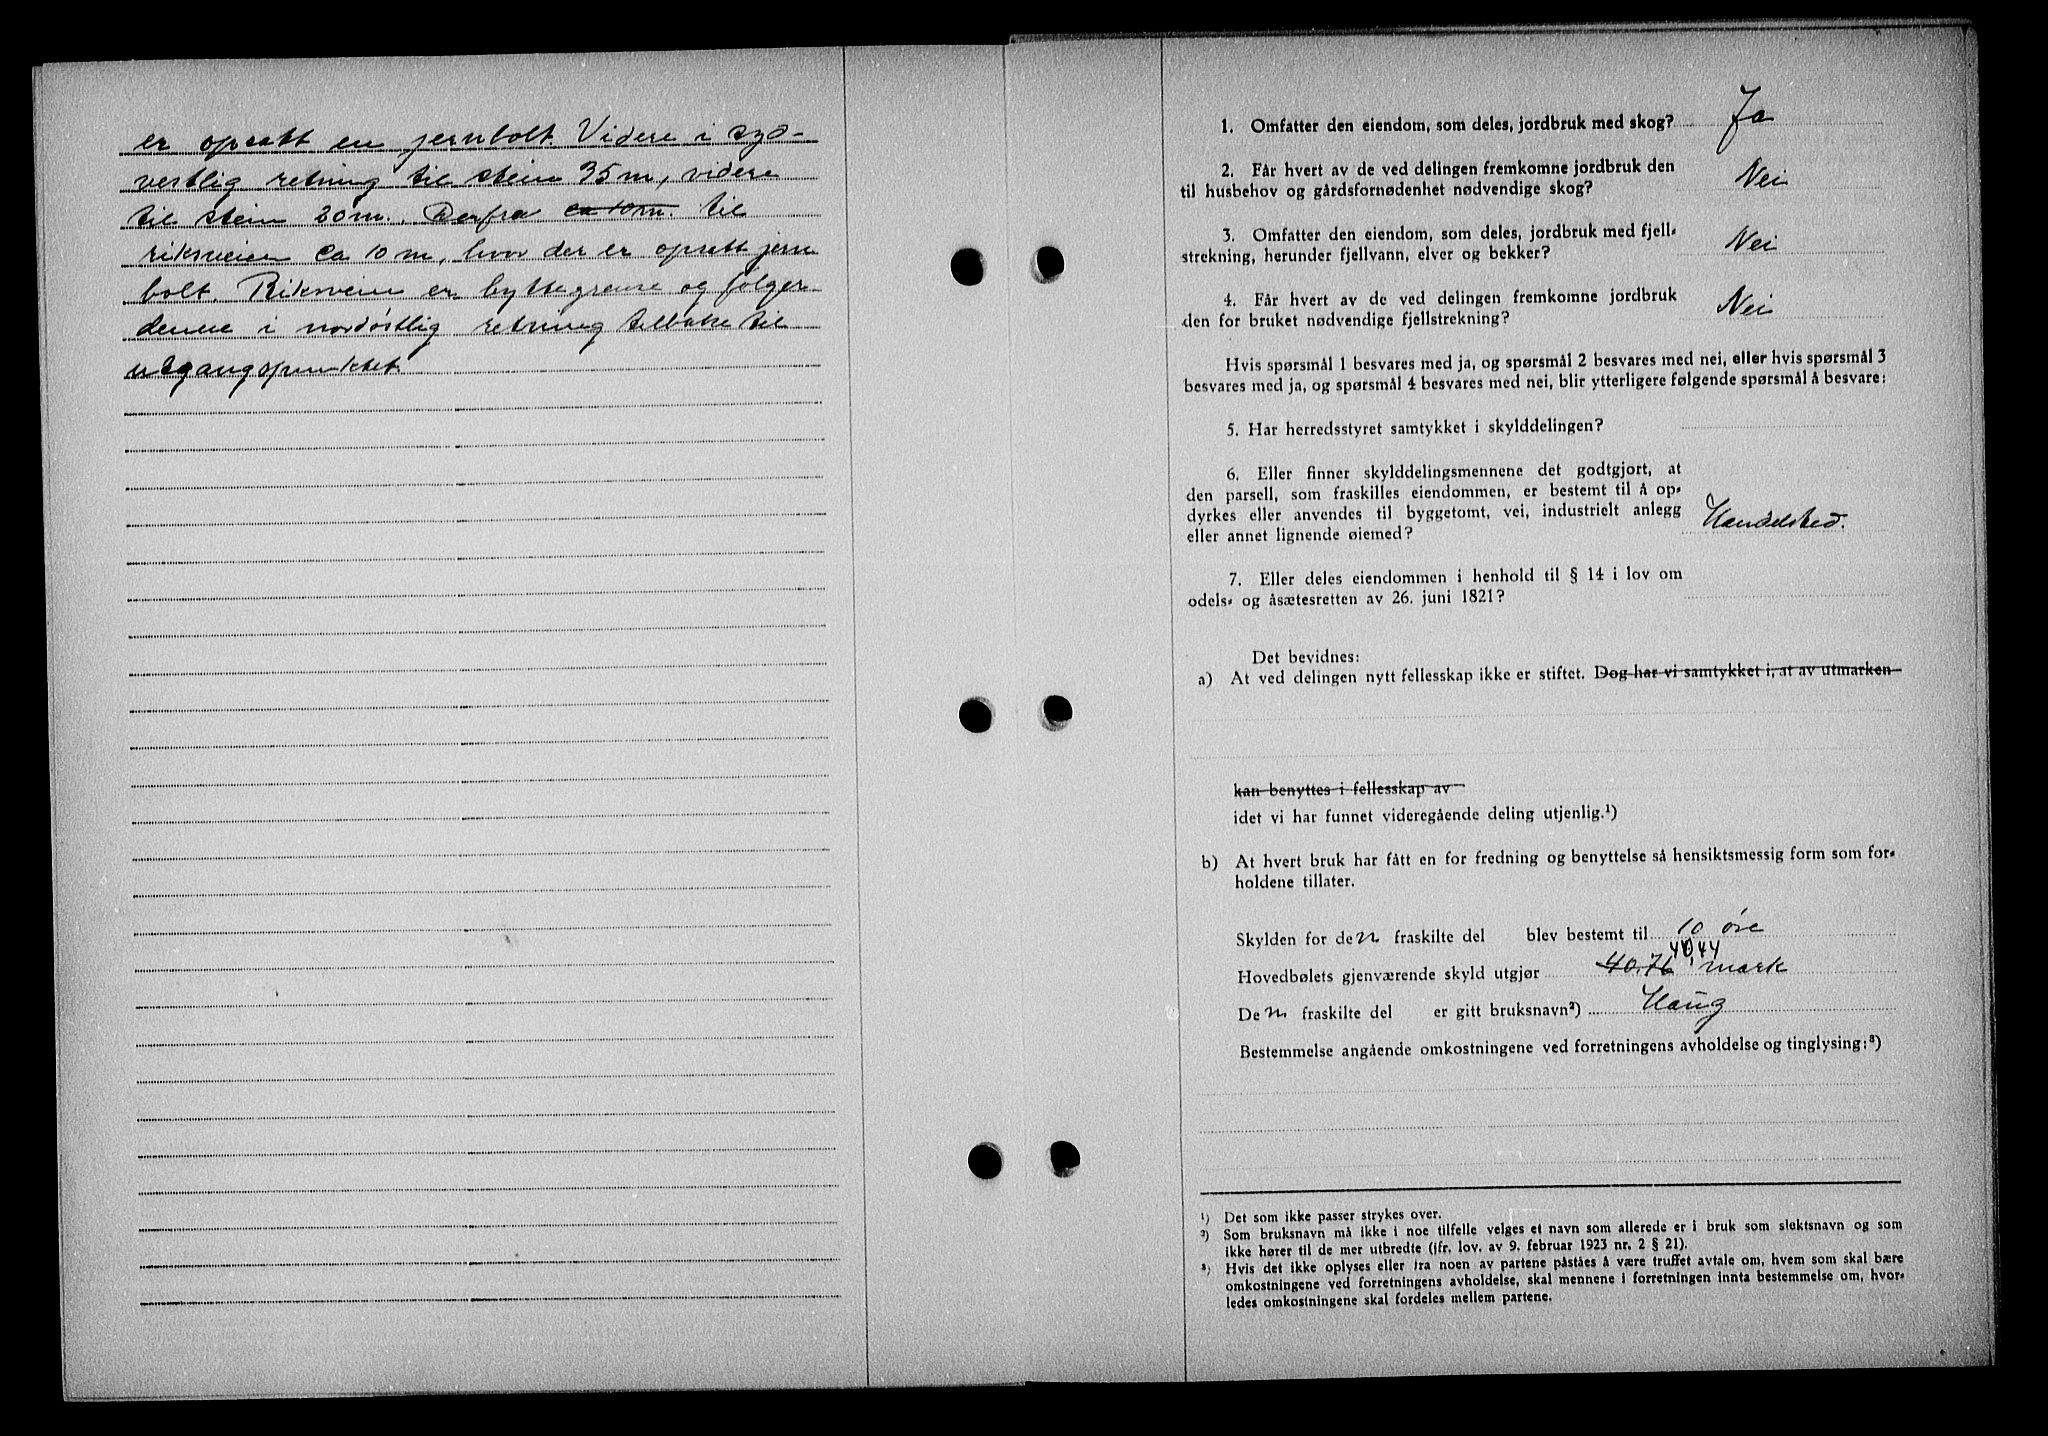 er opsatt en jernbolt. Videre i syd-
vestlig retning til stein 35 m, videre
til stein 20 m. Derfra ca 10 m. til
riksveien ca 10 m, hvor der er opsatt jern
bolt. Riksveien er byttegrense og følger
denne i nordøstlig retning tilbake til
utgangspunktet.
1. Omfatter den eiendom, som deles, jordbruk med skog? Ja
2. Får hvert av de ved delingen fremkomne jordbruk den
til husbehov og gårdsfornødenhet nødvendige skog? Nei
3. Omfatter den eiendom, som deles, jordbruk med fjell-
strekning, herunder fjellvann, elver og bekker? Nei
4. Får hvert av de ved delingen fremkomne jordbruk
den for bruket nødvendige fjellstrekning? Nei
Hvis spørsmål 1 besvares med ja, og spørsmål 2 besvares med nei, eller hvis spørsmål 3
besvares med ja, og spørsmål 4 besvares med nei, blir ytterligere følgende spørsmål å besvare:
5. Har herredsstyret samtykket i skylddelingen?
6. Eller finner skylddelingsmennene det godtgjort, at
den parsell, som fraskilles eiendommen, er bestemt til å op-
dyrkes eller anvendes til byggetomt, vei, industrielt anlegg
eller annet lignende øiemed? Handelsted.
7. Eller deles eiendommen i henhold til § 14 i lov om
odels- og åsætesretten av 26. juni 1821?
Det bevidnes:
a) At ved delingen nytt fellesskap ikke er stiftet. Dog har vi samtykket i, at av utmarken
kan benyttes i fellesskap av
idet vi har funnet videregående deling utjenlig.¹)
b) At hvert bruk har fått en for fredning og benyttelse så hensiktsmessig form som for-
holdene tillater.
Skylden for den fraskilte del blev bestemt til 10 øre
40,44
Hovedbølets gjenværende skyld utgjør 40,76 mark
Den fraskilte del er gitt bruksnavn²) Haug
Bestemmelse angående omkostningene ved forretningens avholdelse og tinglysing:³)
¹) Det som ikke passer strykes over.
²) Som bruksnavn må ikke i noe tilfelle velges et navn som allerede er i bruk som slektsnavn og som
ikke hører til de mer utbredte (jfr. lov. av 9. februar 1923 nr. 2 § 21).
³) Hvis det ikke oplyses eller fra noen av partene påståes å være truffet avtale om, hvem som skal bære
omkostningene ved forretningens avholdelse, skal mennene i forretningen innta bestemmelse om, hvor-
ledes omkostningene skal fordeles mellem partene.